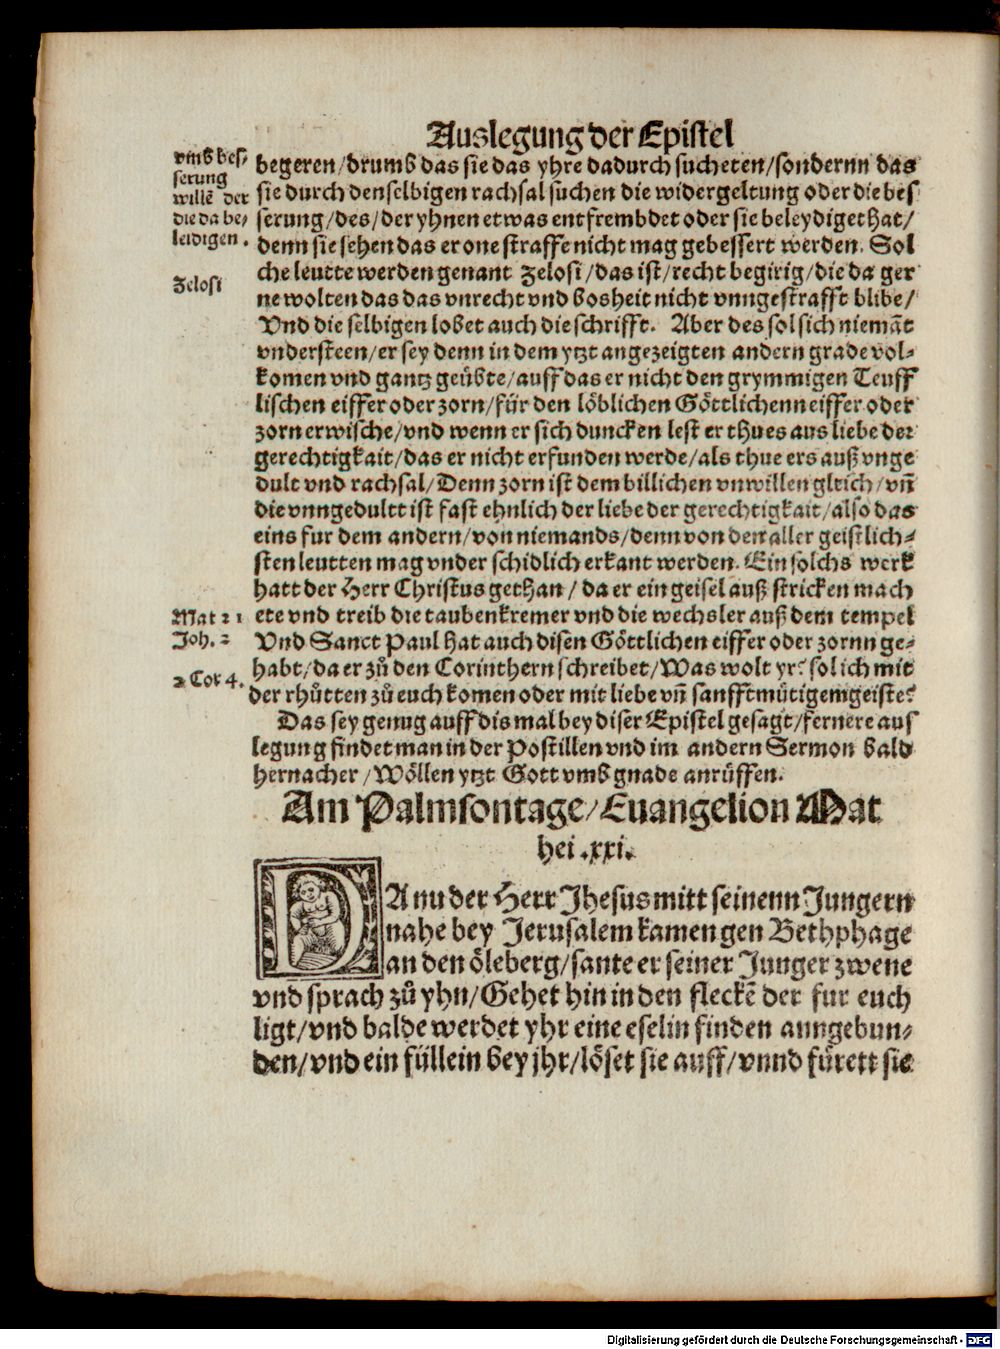 Auslegung der Epistel
vmb bes-
serung
willē der
die da be-
leidigen.
Zelosi
Mat 21
Joh. 2
2 Cor 4.
begeren/drumb das sie das yhre dadurch sucheten/sondernn das
sie durch denselbigen rachsal suchen die widergeltung oder die bes
serung/des/der yhnen etwas entfrembdet oder sie beleydiget hat/
denn sie sehen das er one straffe nicht mag gebessert werden. Sol
che leutte werden genant Zelosi/das ist/recht begirig/die da ger
ne wolten das das vnrecht vnd bosheit nicht vnngestrafft blibe/
Vnd die selbigen lobet auch die schrifft. Aber des sol sich niemāt
vndersteen/er sey denn in dem ytzt angezeigten andern grade vol-
komen vnd gantz geübte/auff das er nicht den grymmigen Teuff
lischen eiffer oder zorn/für den löblichen Göttlichenn eiffer oder
zorn erwische/vnd wenn er sich duncken lest er thues aus liebe der
gerechtigkait/das er nicht erfunden werde/als thue ers auß vnge
dult vnd rachsal/Denn zorn ist dem billichen vnwillen gleich/vñ
die vnngedultt ist fast ehnlich der liebe der gerechtigkait/also das
eins fur dem andern/von niemands/denn von den aller geistlich-
sten leutten mag vnder schidlich erkant werden. Ein solchs werk
hatt der Herr Christus gethan/da er ein geisel auß stricken mach
ete vnd treib die taubenkremer vnd die wechsler auß dem tempel
Vnd Sanct Paul hat auch disen Göttlichen eiffer oder zornn ge-
habt/da er zů den Corinthern schreibet/Was wolt yr? sol ich mit
der rhůtten zů euch komen oder mit liebe vñ sanfftmütigem geiste?
Das sey genug auff dis mal bey diser Epistel gesagt/fernere aus
legung findet man in der Postillen vnd im andern Sermon bald
hernacher/Wöllen ytzt Gott vmb gnade anrüffen.
Am Palmsontage/Euangelion Mat
hei .xxi.
DA nu der Herr Jhesus mitt seinenn Jungern
nahe bey Jerusalem kamen gen Bethphage
an den öleberg/sante er seiner Junger zwene
vnd sprach zů yhn/Gehet hin in den fleckē der fur euch
ligt/vnd balde werdet yhr eine eselin finden anngebun-
den/vnd ein füllein bey jhr/löset sie auff/vnnd fürett sie
Digitalisierung gefördert durch die Deutsche Forschungsgemeinschaft - DFG